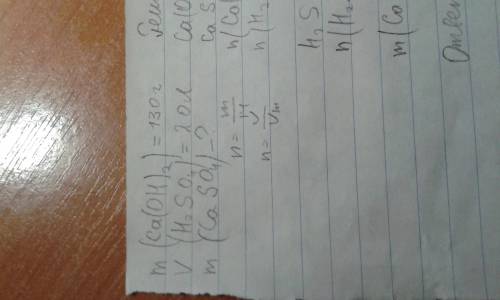 m (Ca(OH)₂) = 130 г
V (H₂SO₄) = 20 л
m (CaSO₄) - ?
n = m/M
n = V/Vm
Ca(O
CaS
n(Ca
n(H₂
H₂S
n(H₂
m(Ca